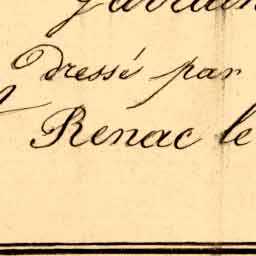 Dressé par
Renac le